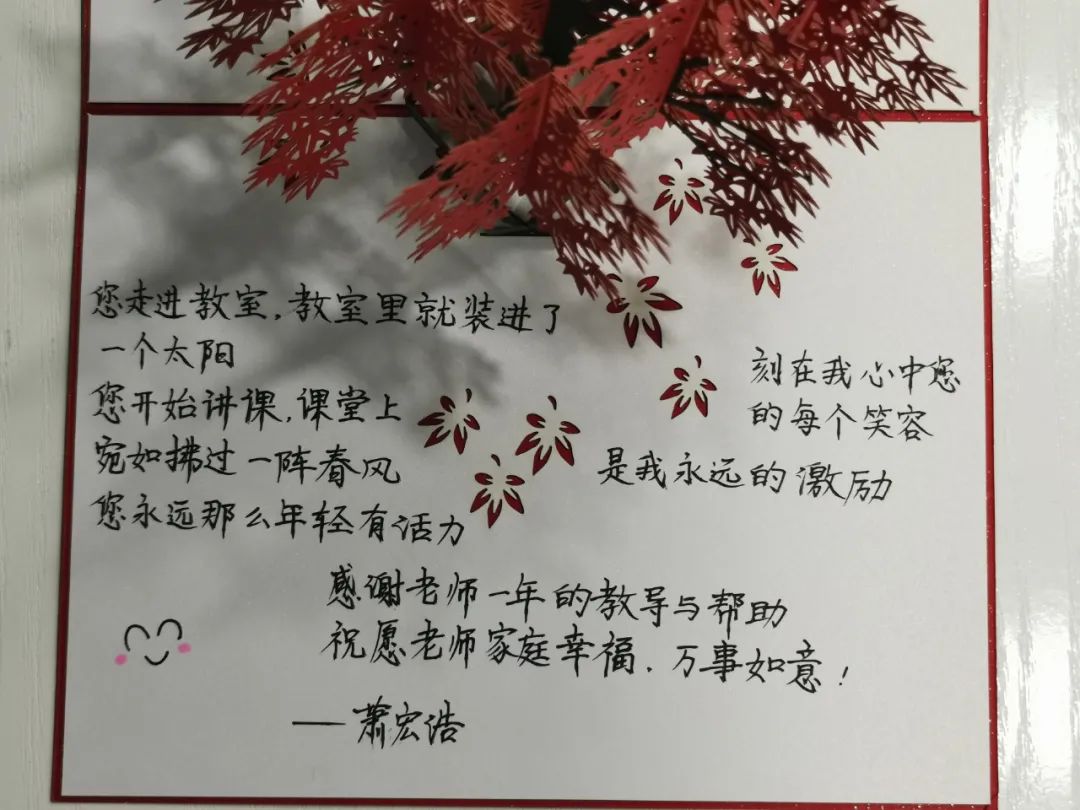 您走进教室,教室里就装进了
一个太阳
您开始讲课,课堂上
宛如拂过一阵春风
您永远那么年轻有活力
刻在我心中您
的每个笑容
是我永远的激励
感谢老师一年的教导与帮助
祝愿老师家庭幸福.万事如意!
——萧宏浩